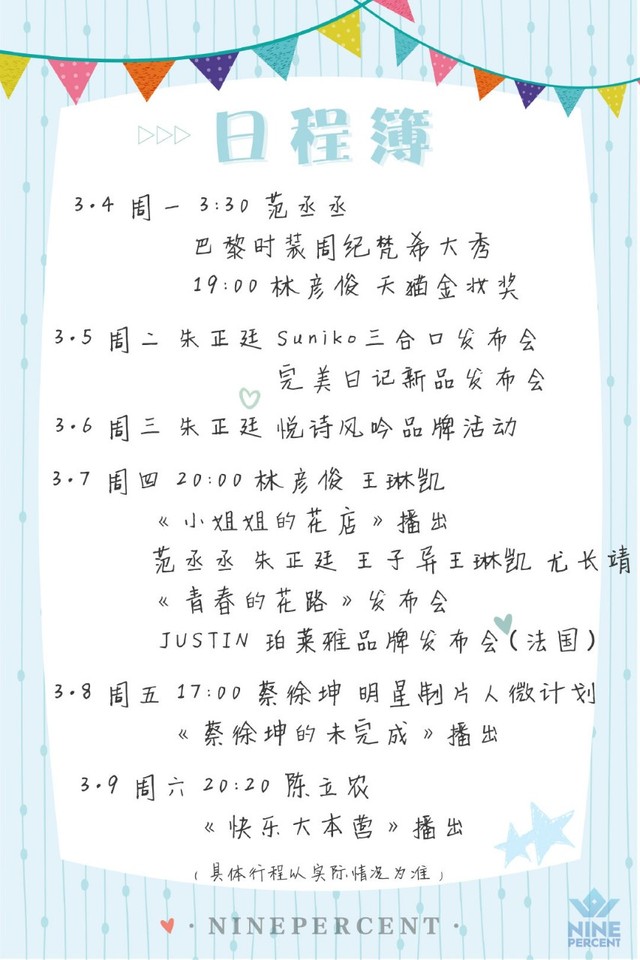 日程簿
3.4 周一 3:30 范丞丞
巴黎时装周纪梵希大秀
19:00 林彦俊 天猫金妆奖
3.5 周二 朱正廷 Suniko三合口发布会
完美日记新品发布会
3.6 周三 朱正廷 悦诗风吟品牌活动
3.7 周四 20:00 林彦俊 王琳凯
《小姐姐的花店》播出
范丞丞 朱正廷 王子异王琳凯 尤长靖
《青春的花路》发布会
JUSTIN 珀莱雅品牌发布会(法国)
3.8 周五 17:00 蔡徐坤 明星制片人微计划
《蔡徐坤的未完成》播出
3.9 周六 20:20 陈立农
《快乐大本营》播出
(具体行程以实际情况为准)
· NINEPERCENT ·
NINE
PERCENT